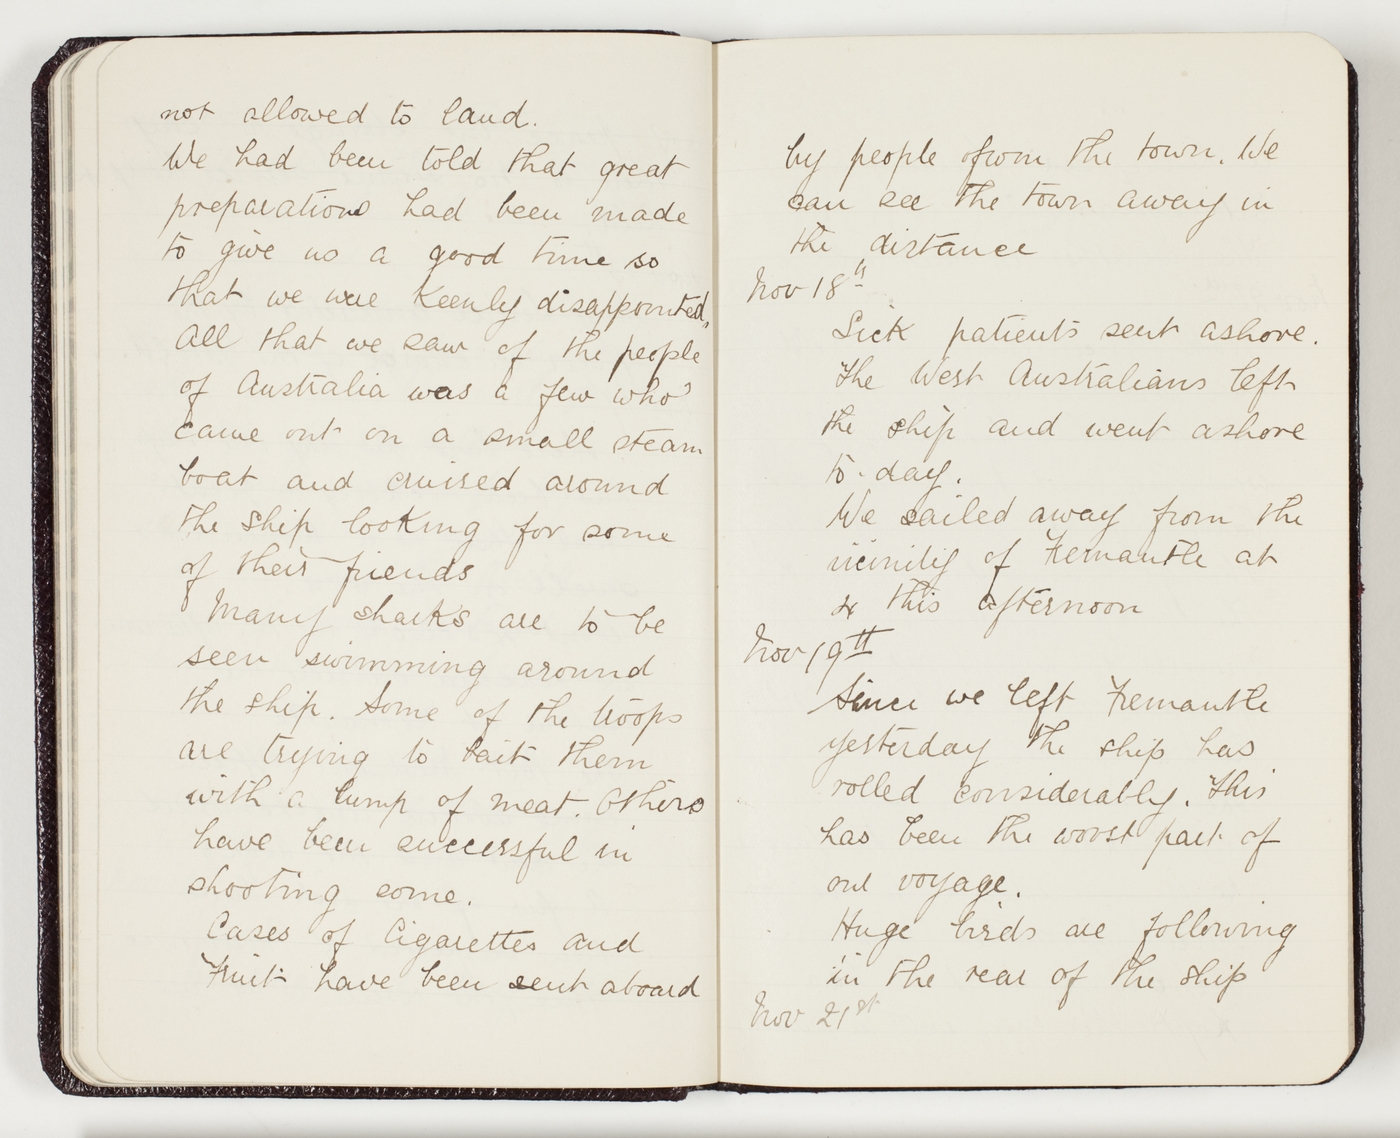 not allowed to land.
We had been told that great
preparations had been made
to give us a good time so
that we were keenly disappointed,
All that we saw of the people
of Australia was a few who
came out on a small steam
boat and cruised around
the ship looking for some
of their friends
Many sharks are to be
seen swimming around
the ship. Some of the troops
are trying to bait them
with a lump of meat. Others
have been successful in
shooting some.
Cases of Cigarettes and
Fruit have been sent aboard
by people from the town. We
can see the town away in
the distance
Nov 18th
Sick patients sent ashore.
The West Australians left
the ship and went ashore
to-day.
We sailed away from the
vicinity of Fremantle at
4 this afternoon
Nov 19th
Since we left Fremantle
yesterday the ship has
rolled considerably. This
has been the worst part of
our voyage.
Huge birds are following
in the rear of the ship
Nov 21st